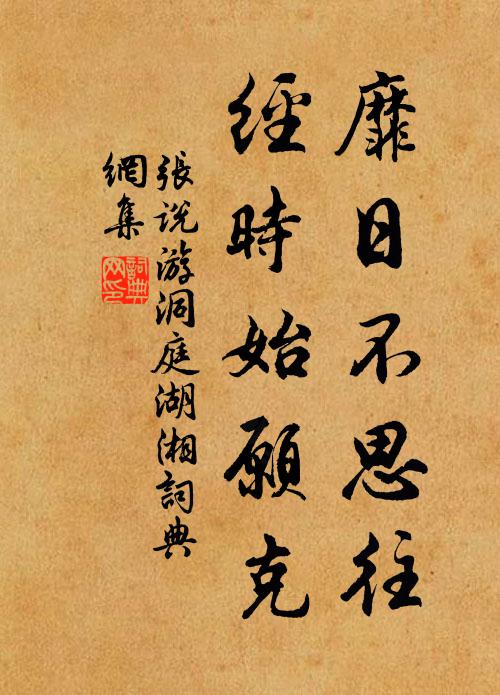 靡日不思往
經時始願克
張說游洞庭湖湘詞典
網集
詞典
网印